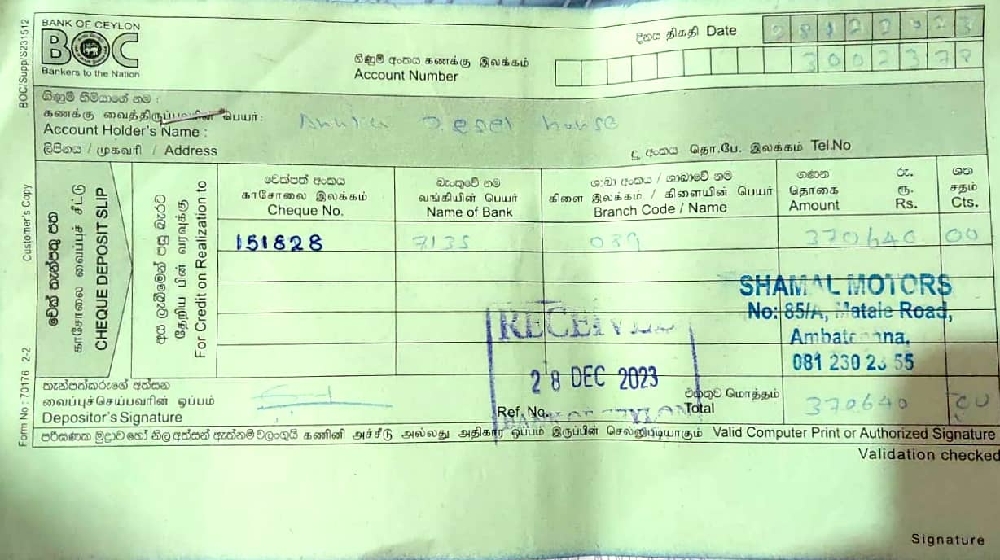 BANK OF CEYLON
BOC
Bankers to the Nation
දිනය திகதி Date 28122023
ගිණුම් අංකය கணக்கு இலக்கம்
Account Number 3002378
ගිණුම් හිමියාගේ නම :
கணக்கு வைத்திருப்பவரின் பெயர்:
Account Holder's Name : Diesel house
ලිපිනය / முகவரி / Address
දු. අංකය தொ.பே. இலக்கம் Tel.No
චෙක්පත් අංකය බැංකුවේ නම ශාඛා අංකය / ශාඛාවේ නම ගණන රු. ශත
காசோலை இலக்கம் வங்கியின் பெயர் கிளை இலக்கம் / கிளையின் பெயர் தொகை ரூ. சதம்
Cheque No. Name of Bank Branch Code / Name Amount Rs. Cts.
151828 7135 089 370640 00
චෙක් තැන්පතු පත
காசோலை வைப்புச் சீட்டு
CHEQUE DEPOSIT SLIP
අය ලැබීමෙන් පසු බැරට
தேறிய பின் வரவுக்கு
For Credit on Realization to
SHAMAL MOTORS
No: 85/A, Matale Road,
RECEIVED
28 DEC 2023
තැන්පත්කරුගේ අත්සන
வைப்புச்செய்பவரின் ஒப்பம்
Depositor's Signature
Ref. No.
එකතුව மொத்தம்
Total 370640 00
පරිගණක මුද්‍රාව හෝ නිල අත්සන් ඇත්නම් වලංගුයි கணினி அச்சீடு அல்லது அதிகார ஒப்பம் இருப்பின் செல்லுபடியாகும் Valid Computer Print or Authorized Signature
Validation checked
Signature
BOC/Supp/S231512
Customer's Copy
Form No : 70176 2-2